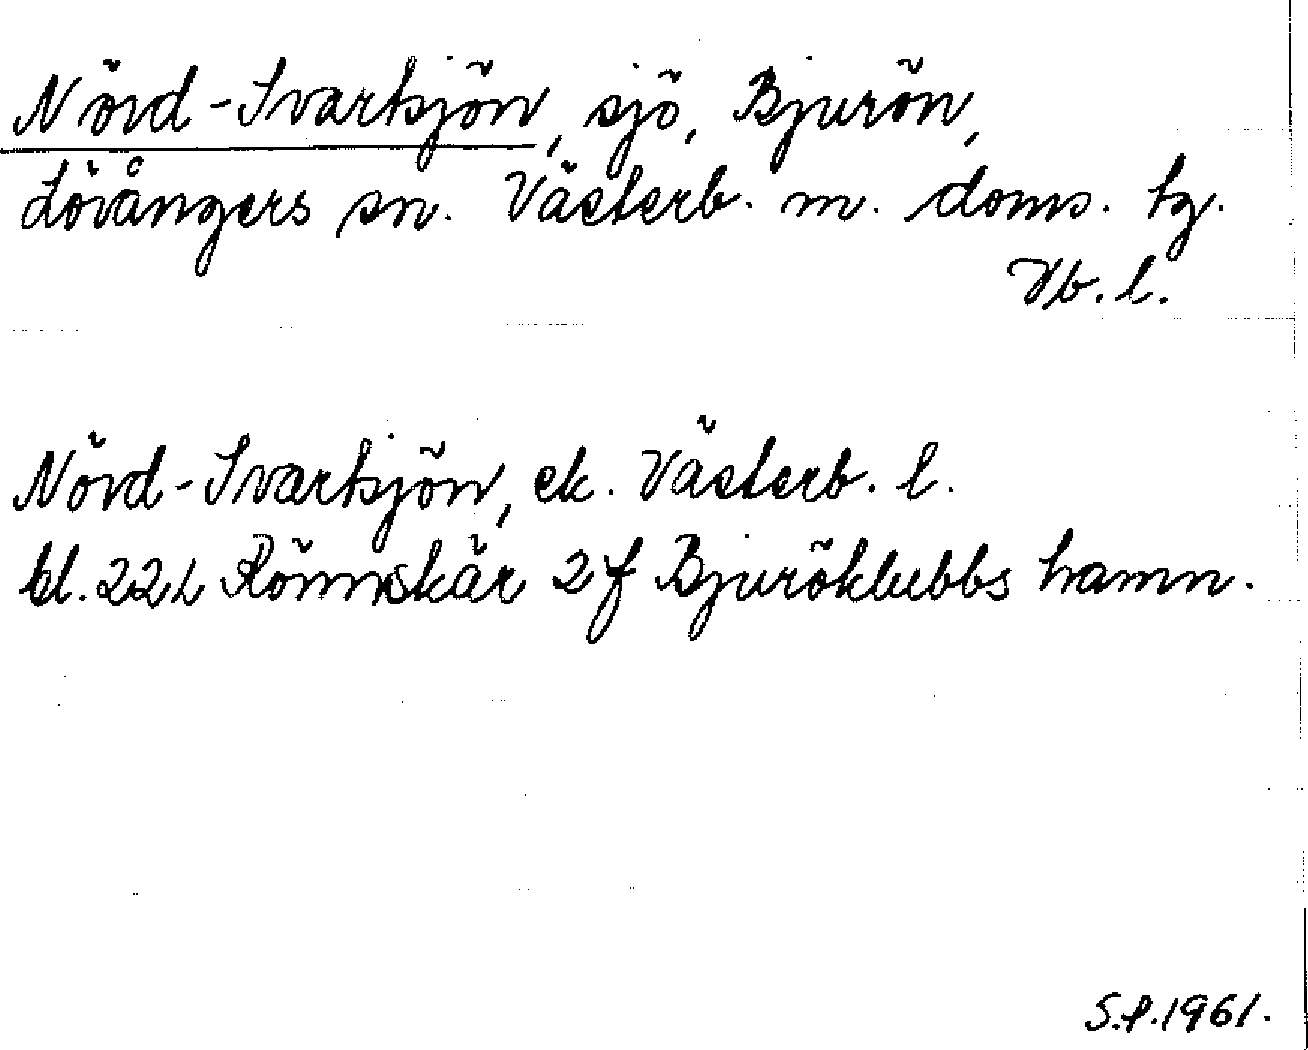 Nörd-Svartsjön, sjö, Bjurön,
Lövångers sn. Västerb. m. doms. tg.
Vb. l.
Nörd-Svartsjön, ek. Västerb. l.
bl. 22L Rönnskär 2f Bjuröklubbs hamn.
S.P. 1961.